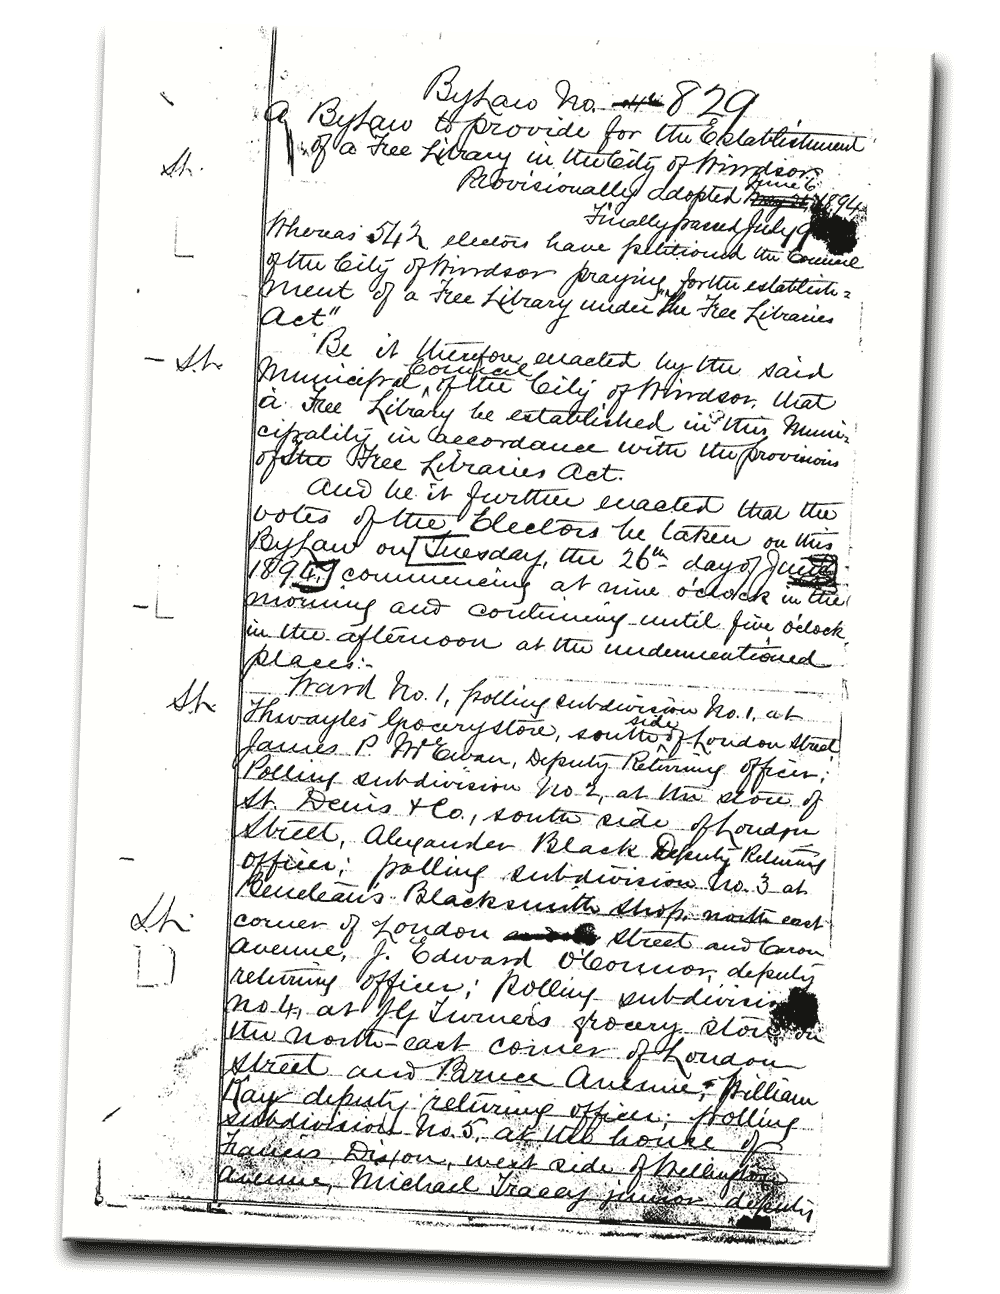 ByLaw No. 829
A ByLaw to provide for the Establishment
of a Free Library in the City of Windsor.
Provisionally adopted June 6 1894
Finally passed July 9
Whereas 542 electors have petitioned the Council
of the City of Windsor praying for the establish=
ment of a Free Library under "the Free Libraries
Act"
Be it therefore enacted by the said
Municipal Council of the City of Windsor, that
a Free Library be established in this Muni-
cipality in accordance with the provisions
of the Free Libraries Act.
And be it further enacted that the
votes of the Electors be taken on this
ByLaw on Tuesday, the 26th day of June
1894, commencing at nine o'clock in the
morning and continuing until five o'clock
in the afternoon at the undermentioned
places:-
Ward No. 1, polling subdivision No. 1, at
Thwaytes Grocery store, south side of London Street,
James P. McEwan, Deputy Returning officer;
Polling subdivision No 2, at the store of
St. Denis & Co., south side of London
Street, Alexander Black Deputy Returning
officer; polling subdivision No. 3 at
Beneteau's Blacksmith Shop, north east
corner of London Street and Caron
Avenue, J. Edward O'Connor, deputy
returning officer; polling subdivision
No 4, at Turner's grocery store on
the north-east corner of London
Street and Bruce Avenue, William
Kay deputy returning officer; polling
subdivision No. 5, at the house of
Francis Dixon, west side of Wellington
Avenue, Michael Tracey junior deputy
St.
- St.
St.
St.